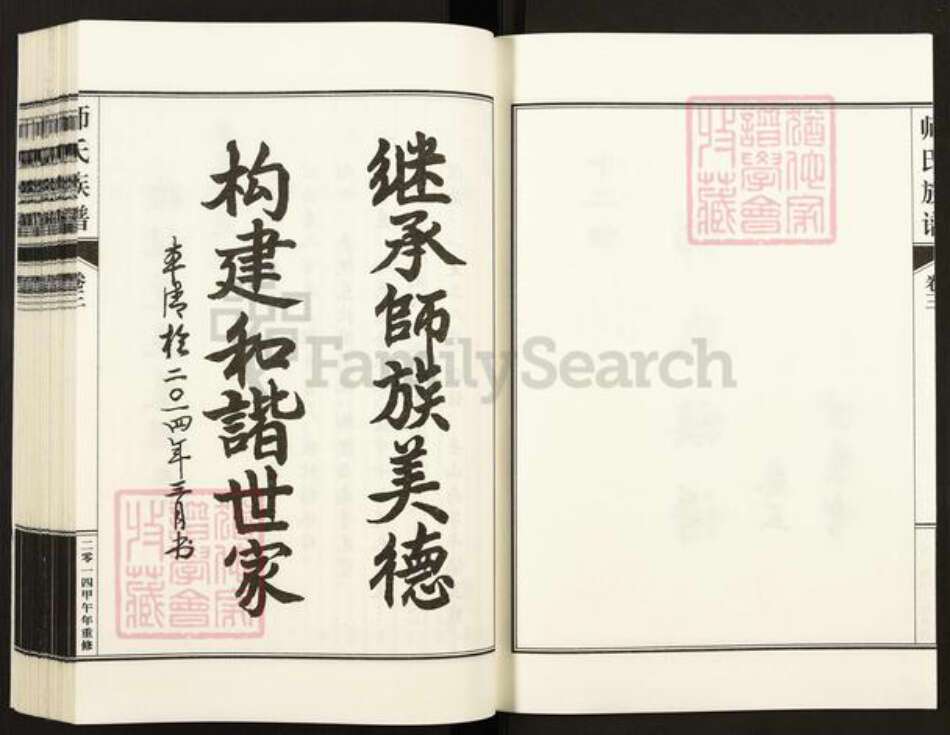 师氏族谱
卷三
继承師族美德
构建和諧世家
二〇一四年三月书
二零一四甲午年重修
师氏族谱
卷三
譜學會
收藏
譜學會
收藏
FamilySearch